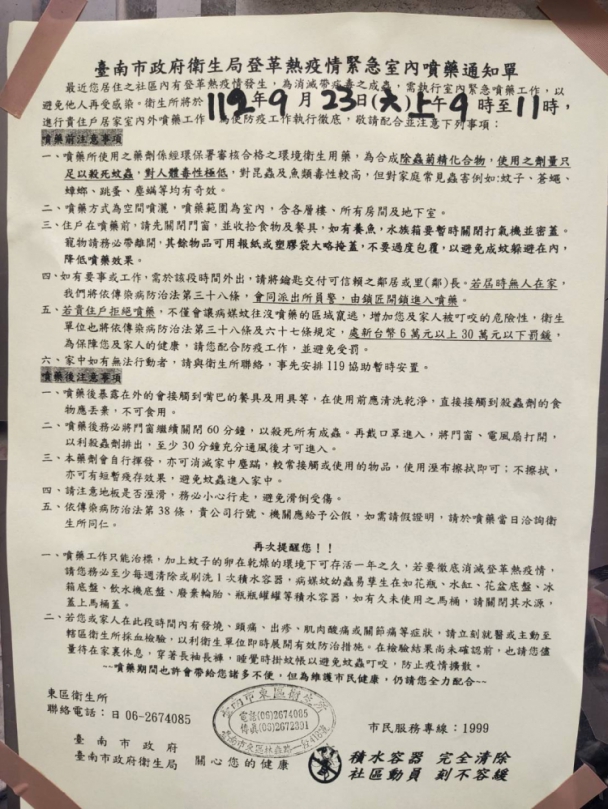 臺南市政府衛生局登革熱疫情緊急室內噴藥通知單
最近您居住之社區內有登革熱疫情發生，為消滅帶病毒之成蟲，需執行室內緊急噴藥工作，以
避免他人再受感染。衛生所將於112年9月23日(六)上午9時至11時，
進行貴住戶居家室內外噴藥工作，為使防疫工作執行徹底，敬請配合並注意下列事項：
噴藥前注意事項
一、噴藥所使用之藥劑係經環保署審核合格之環境衛生用藥，為合成除蟲菊精化合物，使用之劑量只
足以殺死蚊蟲，對人體毒性極低，對昆蟲及魚類毒性較高，但對家庭常見蟲害例如:蚊子、蒼蠅、
蟑螂、跳蚤、塵蟎等均有奇效。
二、噴藥方式為空間噴灑，噴藥範圍為室內，含各層樓、所有房間及地下室。
三、住戶在噴藥前，請先關閉門窗，並收拾食物及餐具，如有養魚，水族箱要暫時關閉打氣機並密蓋。
寵物請務必帶離開，其餘物品可用報紙或塑膠袋大略掩蓋，不要過度包覆，以避免成蚊躲避在內，
降低噴藥效果。
四、如有要事或工作，需於該段時間外出，請將鑰匙交付可信賴之鄰居或里(鄰)長。若屆時無人在家，
我們將依傳染病防治法第三十八條，會同派出所員警，由鎖匠開鎖進入噴藥。
五、若貴住戶拒絕噴藥，不僅會讓病媒蚊往沒噴藥的區域竄逃，增加您及家人被叮咬的危險性，衛生
單位也將依傳染病防治法第三十八條及六十七條規定，處新台幣6萬元以上30萬元以下罰鍰，
為保障您及家人的健康，請您配合防疫工作，並避免受罰。
六、家中如有無法行動者，請與衛生所聯絡，事先安排119協助暫時安置。
噴藥後注意事項
一、噴藥後暴露在外的會接觸到嘴巴的餐具及用具等，在使用前應清洗乾淨，直接接觸到殺蟲劑的食
物應丟棄，不可食用。
二、噴藥後務必將門窗繼續關閉60分鐘，以殺死所有成蟲。再戴口罩進入，將門窗、電風扇打開，
以利殺蟲劑排出，至少30分鐘充分通風後才可進入。
三、本藥劑會自行揮發，亦可消滅家中塵蟎，較常接觸或使用的物品，使用溼布擦拭即可；不擦拭，
亦可有短暫殘存效果，避免蚊蟲進入家中。
四、請注意地板是否溼滑，務必小心行走，避免滑倒受傷。
五、依傳染病防治法第38條，貴公司行號、機關應給予公假，如需請假證明，請於噴藥當日洽詢衛
生所同仁。
再次提醒您！！
一、噴藥工作只能治標，加上蚊子的卵在乾燥的環境下可存活一年之久，若要徹底消滅登革熱疫情，
請您務必至少每週清除或刷洗1次積水容器，病媒蚊幼蟲易孳生在如花瓶、水缸、花盆底盤、冰
箱底盤、飲水機底盤、廢棄輪胎、瓶瓶罐罐等積水容器，如有久未使用之馬桶，請關閉其水源，
蓋上馬桶蓋。
二、若您或家人在此段時間內有發燒、頭痛、出疹、肌肉酸痛或關節痛等症狀，請立刻就醫或主動至
轄區衛生所採血檢驗，以利衛生單位即時展開有效防治措施。在檢驗結果尚未確認前，也請您儘
量待在家裏休息，穿著長袖長褲，睡覺時掛蚊帳以避免蚊蟲叮咬，防止疫情擴散。
~~噴藥期間也許會帶給您諸多不便，但為維護市民健康，仍請您全力配合~~
東區衛生所
聯絡電話：日 06-2674085
臺南市東區衛生所
電話(06)2674085
傳真(06)2672391
臺南市東區林森路一段418號
市民服務專線：1999
臺南市政府
臺南市政府衛生局 關心您的健康
積水容器 完全清除
社區動員 刻不容緩